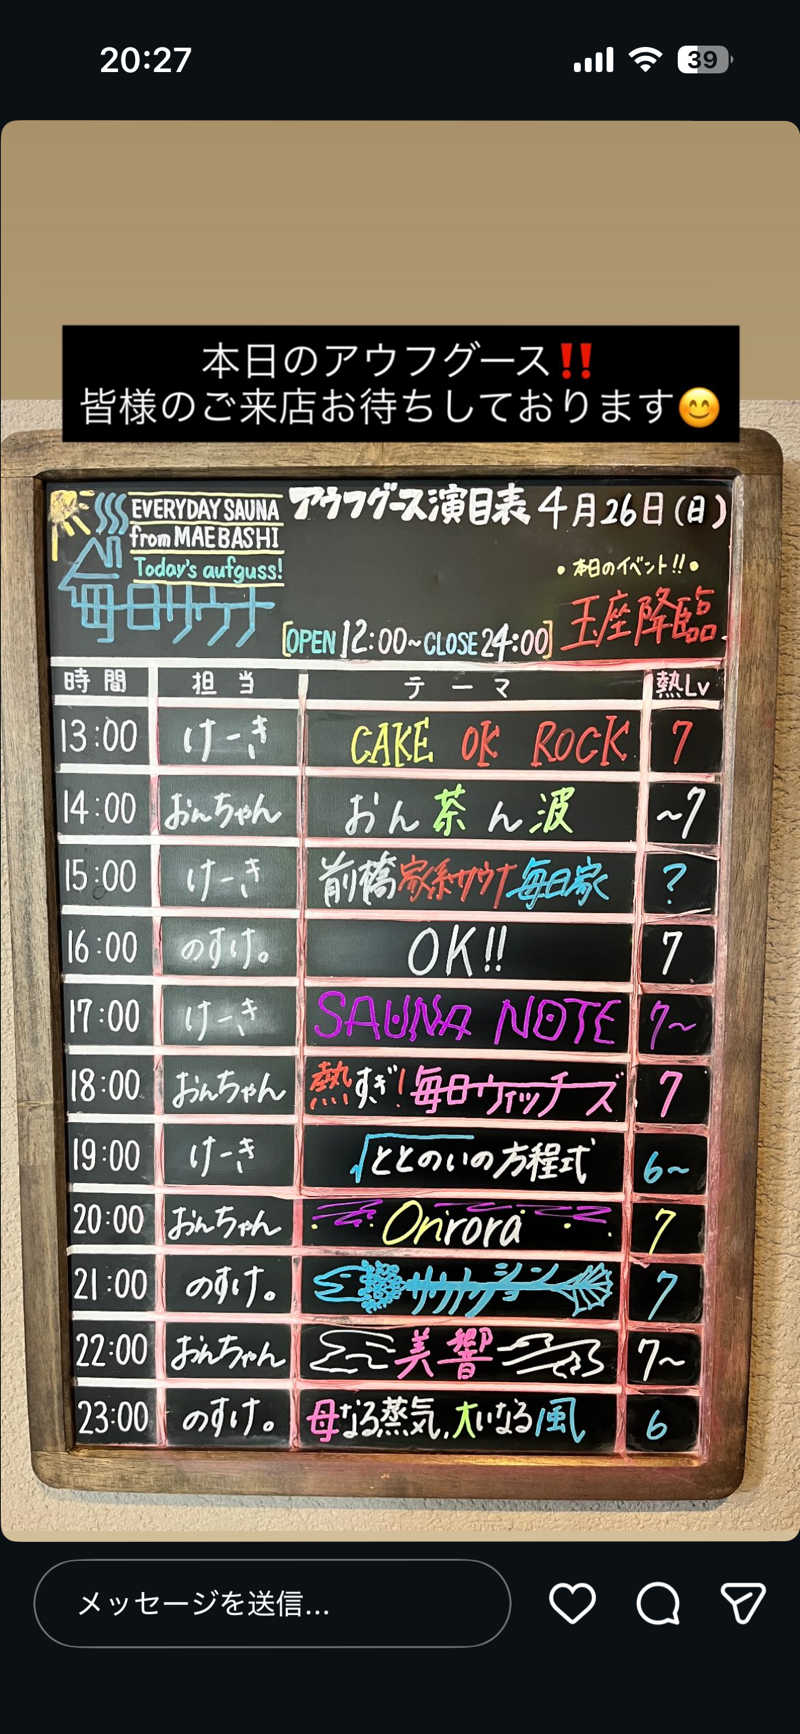 20:27
39
本日のアウフグース‼️
皆様のご来店お待ちしております😊
EVERYDAY SAUNA
from MAEBASHI
Today's aufguss!
毎日サウナ
アウフグース演目表 4月26日(日)
・本日のイベント!!・
玉座降臨
[OPEN 12:00~CLOSE 24:00]
時間 担当 テーマ 熱Lv
13:00 けーき CAKE OK ROCK 7
14:00 おんちゃん おん茶ん波 ~7
15:00 けーき 前橋家系サウナ毎日家 ?
16:00 のすけ。 OK!! 7
17:00 けーき SAUNA NOTE 7~
18:00 おんちゃん 熱すぎ!毎日ウィッチーズ 7
19:00 けーき √ととのいの方程式 6~
20:00 おんちゃん Onrora 7
21:00 のすけ。 サカナクション 7
22:00 おんちゃん 美響 7~
23:00 のすけ。 母なる蒸気,大いなる風 6
メッセージを送信...